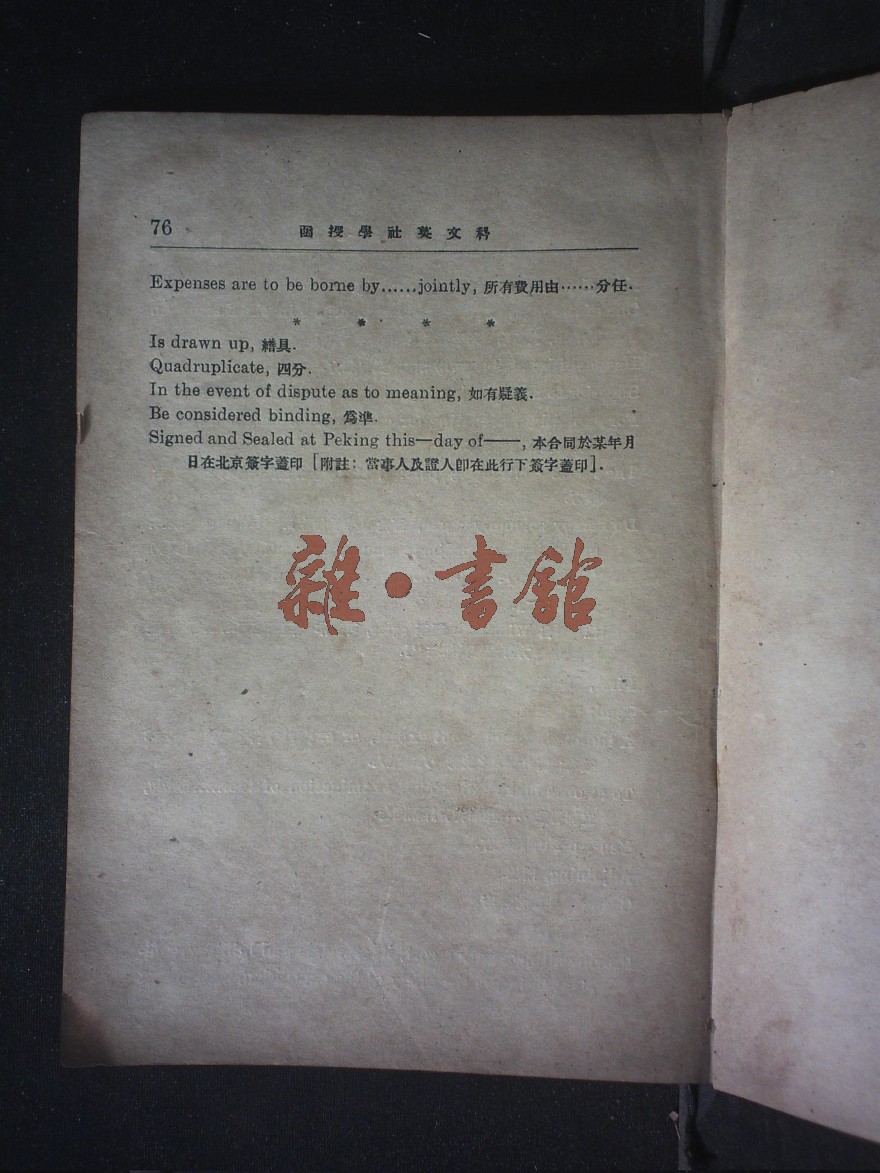 76 函授學社英文科
Expenses are to be borne by......jointly, 所有費用由......分任.
* * * *
Is drawn up, 繕具.
Quadruplicate, 四分.
In the event of dispute as to meaning, 如有疑義.
Be considered binding, 爲準.
Signed and Sealed at Peking this—day of——, 本合同於某年月
日在北京簽字蓋印 [附註: 當事人及證人卽在此行下簽字蓋印].
雜·書館